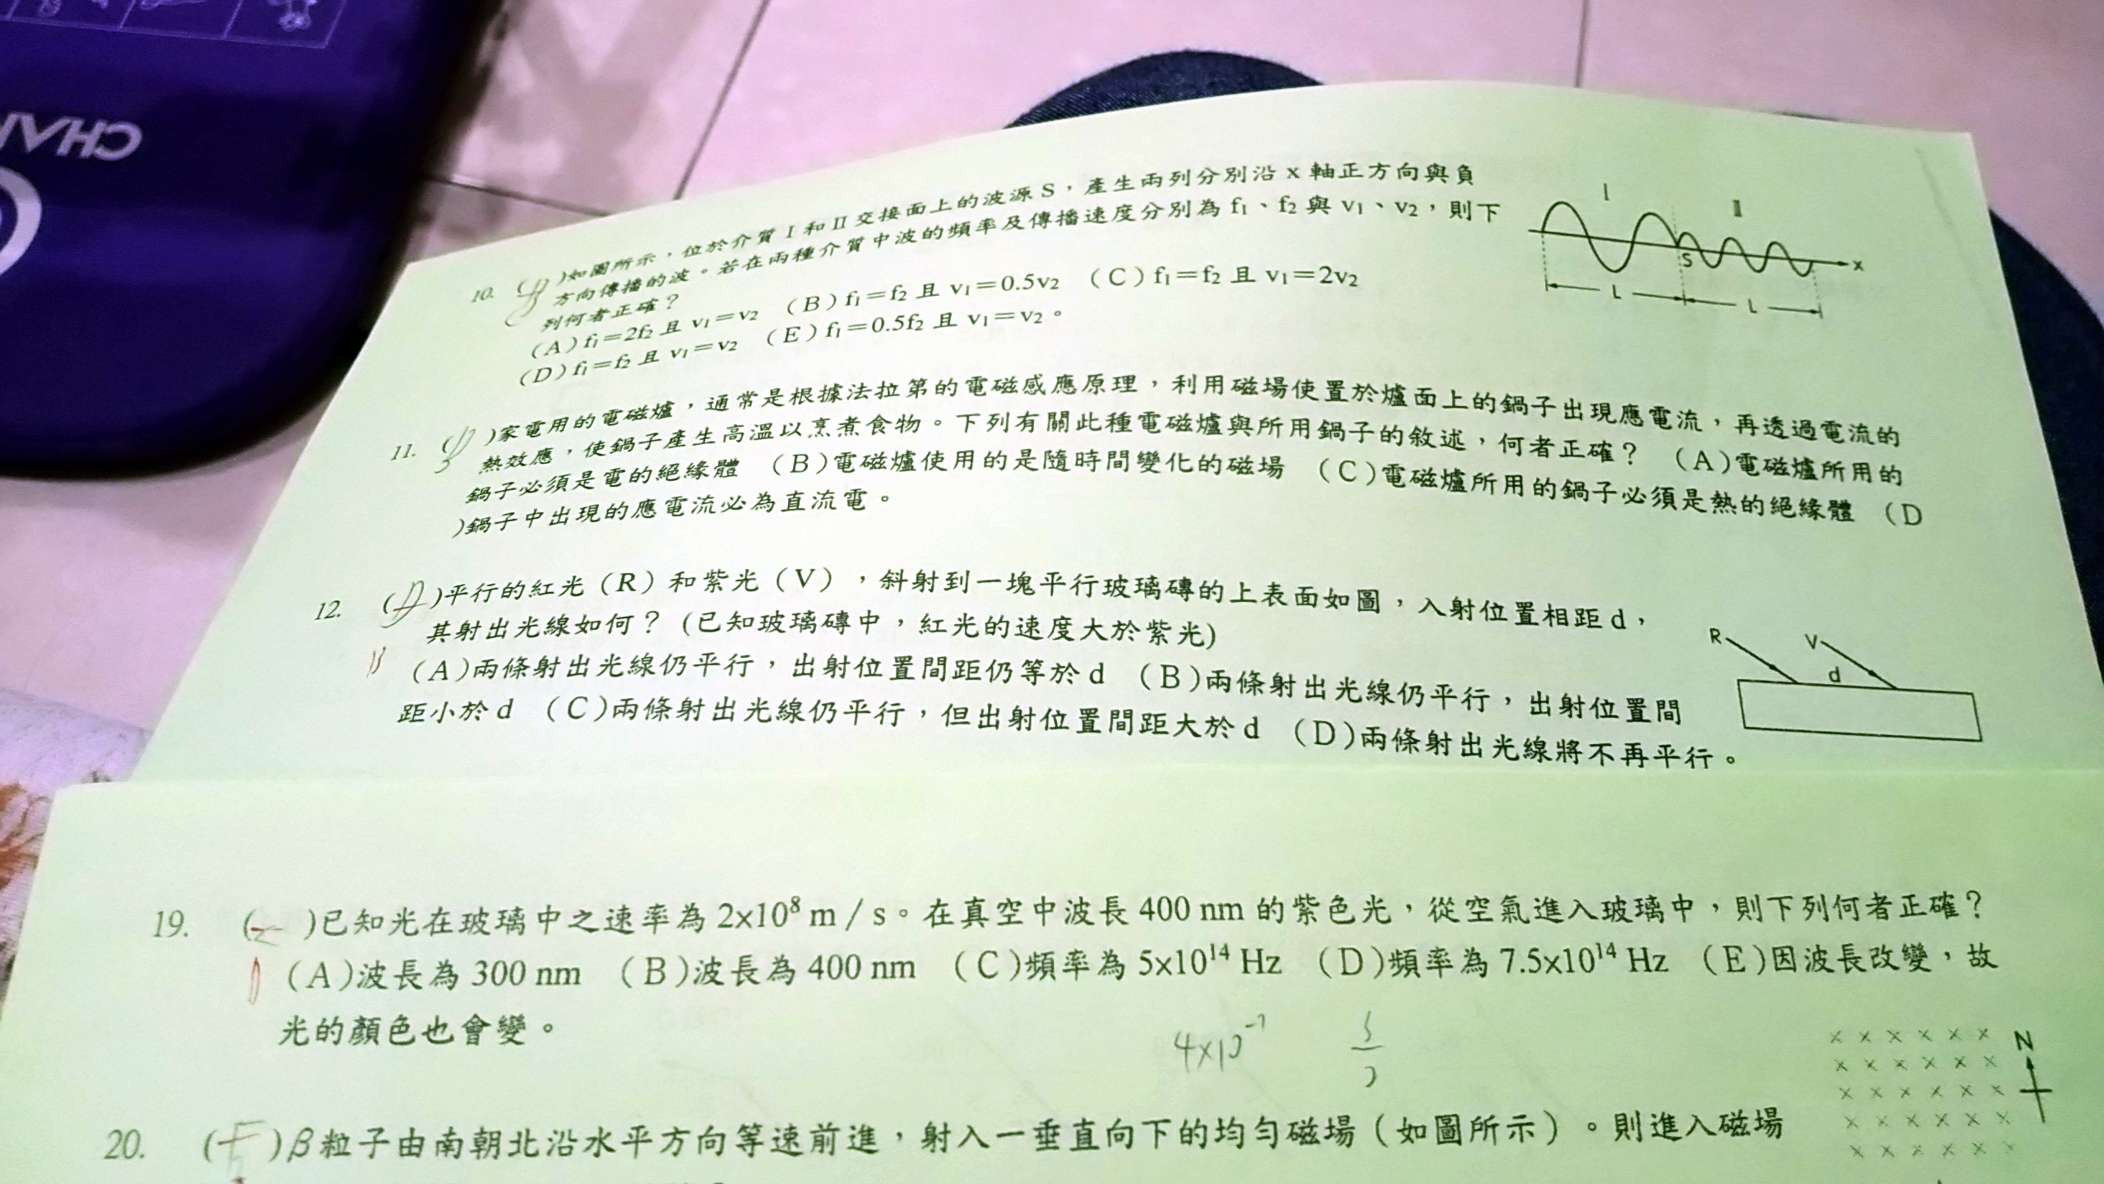 CHAN
10. ( )如圖所示，位於介質 I 和 II 交接面上的波源 S，產生兩列分別沿 x 軸正方向與負
方向傳播的波。若在兩種介質中波的頻率及傳播速度分別為 f₁、f₂ 與 v₁、v₂，則下
列何者正確？
(A) f₁=2f₂ 且 v₁=v₂ (B) f₁=f₂ 且 v₁=0.5v₂ (C) f₁=f₂ 且 v₁=2v₂
(D) f₁=f₂ 且 v₁=v₂ (E) f₁=0.5f₂ 且 v₁=v₂。
I II
S x
L L
11. ( )家電用的電磁爐，通常是根據法拉第的電磁感應原理，利用磁場使置於爐面上的鍋子出現應電流，再透過電流的
熱效應，使鍋子產生高溫以烹煮食物。下列有關此種電磁爐與所用鍋子的敘述，何者正確？ (A)電磁爐所用的
鍋子必須是電的絕緣體 (B)電磁爐使用的是隨時間變化的磁場 (C)電磁爐所用的鍋子必須是熱的絕緣體 (D
)鍋子中出現的應電流必為直流電。
12. (D)平行的紅光（R）和紫光（V），斜射到一塊平行玻璃磚的上表面如圖，入射位置相距 d，
其射出光線如何？ (已知玻璃磚中，紅光的速度大於紫光)
(A)兩條射出光線仍平行，出射位置間距仍等於 d (B)兩條射出光線仍平行，出射位置間
距小於 d (C)兩條射出光線仍平行，但出射位置間距大於 d (D)兩條射出光線將不再平行。
R V
d
19. ( )已知光在玻璃中之速率為 2x10⁸ m / s。在真空中波長 400 nm 的紫色光，從空氣進入玻璃中，則下列何者正確？
(A)波長為 300 nm (B)波長為 400 nm (C)頻率為 5x10¹⁴ Hz (D)頻率為 7.5x10¹⁴ Hz (E)因波長改變，故
光的顏色也會變。
4x10⁻⁷
N
20. ( )β粒子由南朝北沿水平方向等速前進，射入一垂直向下的均勻磁場（如圖所示）。則進入磁場